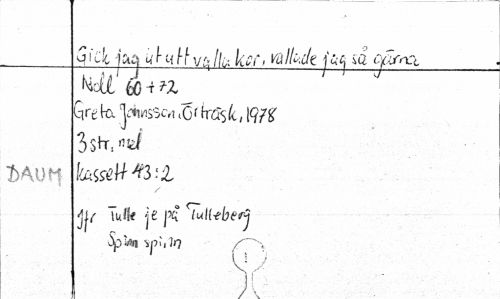 Gick jag ut att valla kor, vallade jag så gärna
Noll 60+72
Greta Johnsson, Örträsk, 1978
3 str, mel
DAUM kassett 43:2
Jfr Tulle je på Tulleberg
Spinn spinn